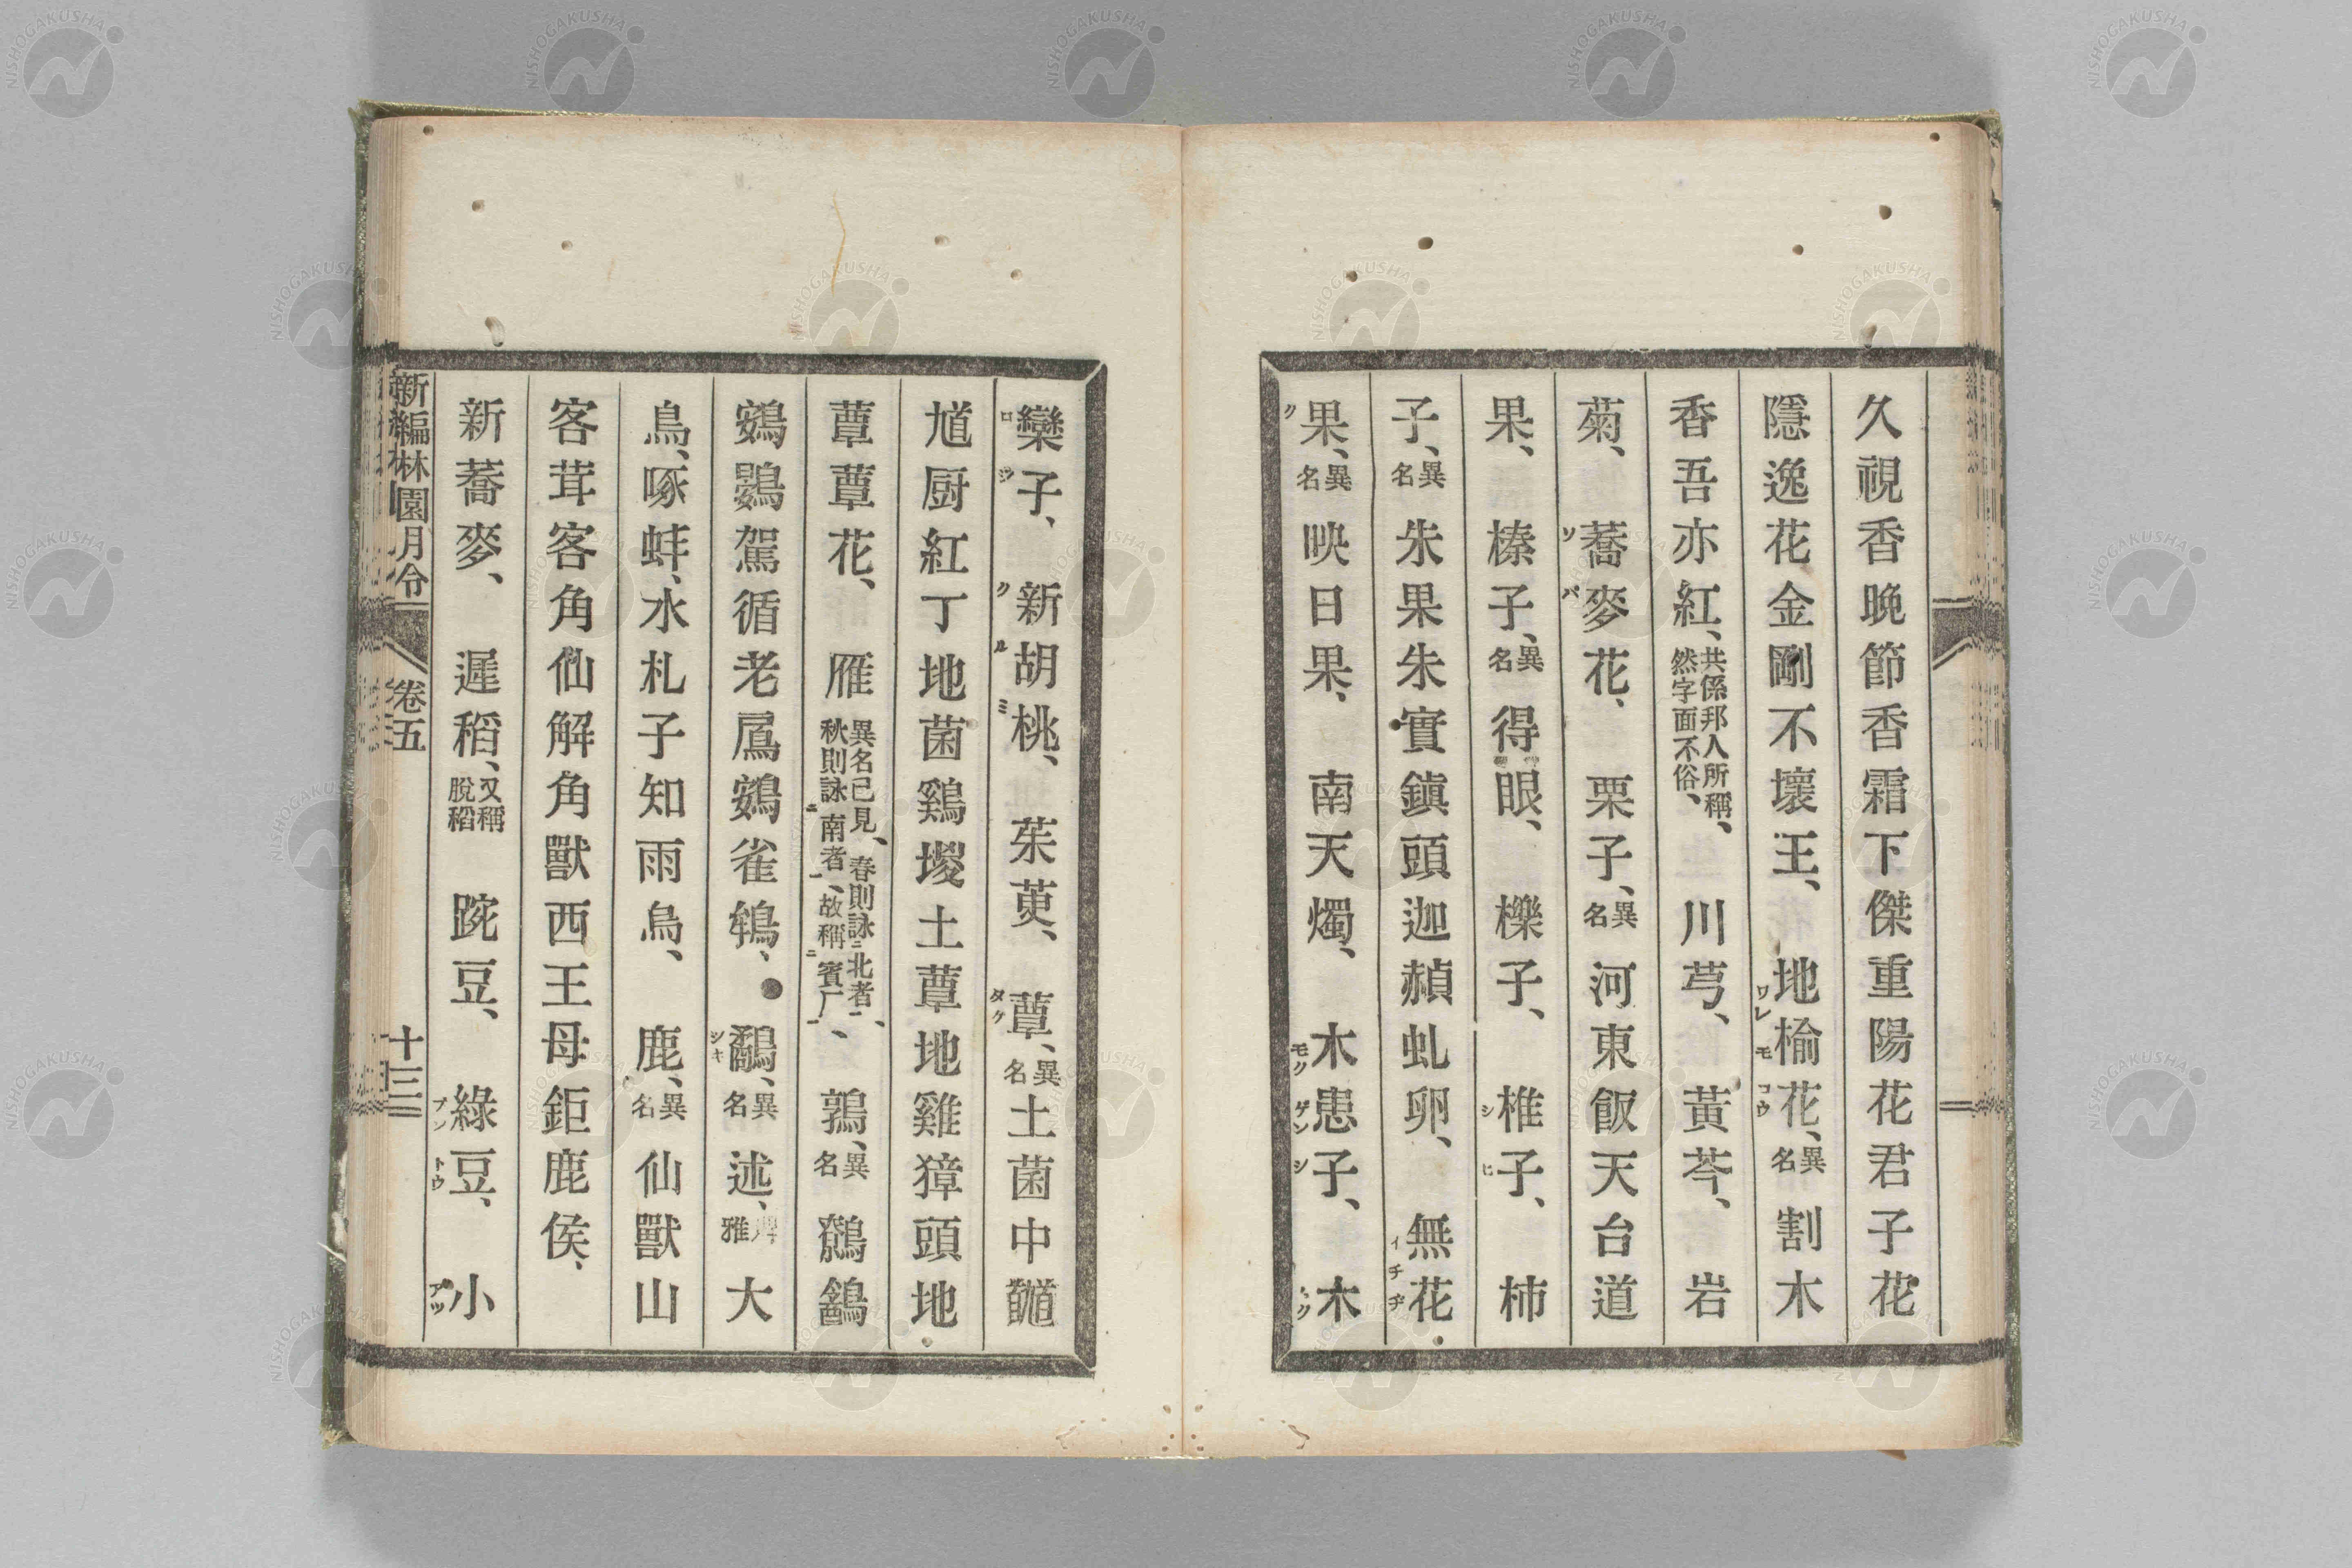 久視香晩節香霜下傑重陽花君子花
隱逸花金剛不壞王、地楡花、異名割木
ワレモコウ
香吾亦紅、共係邦人所稱、然字面不俗、川芎、黃芩、岩
菊、蕎麥花、栗子、異名河東飯天台道
ソバ
果、榛子、異名得眼、櫟子、椎子、柿
シヒ
子、異名朱果朱實鎭頭迦赬虬卵、無花
イチヂ
果、異名映日果、南天燭、木患子、木
ク
モクゲンシ
欒子、新胡桃、茱萸、蕈、異名土菌中
ロジ
クルミ
タケ
厨紅丁地菌鷄㙡土蕈地雞獐頭地
蕈蕈花、雁異名已見、春則詠北者、秋則詠南者、故稱賓厂、鶉、異名
ニ一ニ一ニ一
鴳鷃駕循老鳸鴳雀鶕、鷸、異名述、雅大
シキ
鳥、啄蚌、水札子知雨鳥、鹿、異名仙獸山
客茸客角仙解角獸西王母鉅鹿侯、
新蕎麥、遲稻、又稱脫稻豌豆、綠豆、小
ブントウ
アヅ
新編林園月令 卷五 十三
NISHOGAKUSHA